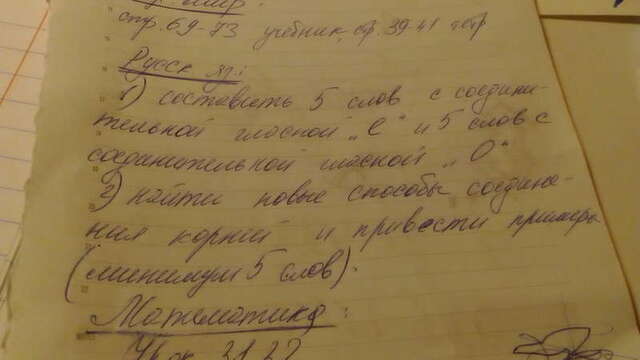 мир.
стр. 69-73 учебник, стр. 39-41 тетр
Русск яз:
1) составить 5 слов с соедини-
тельной гласной „е" и 5 слов с
соединительной гласной „О"
2) найти новые способы соедине-
ния корней и привести примеры
(минимум 5 слов).
Математика:
Урок 21,22